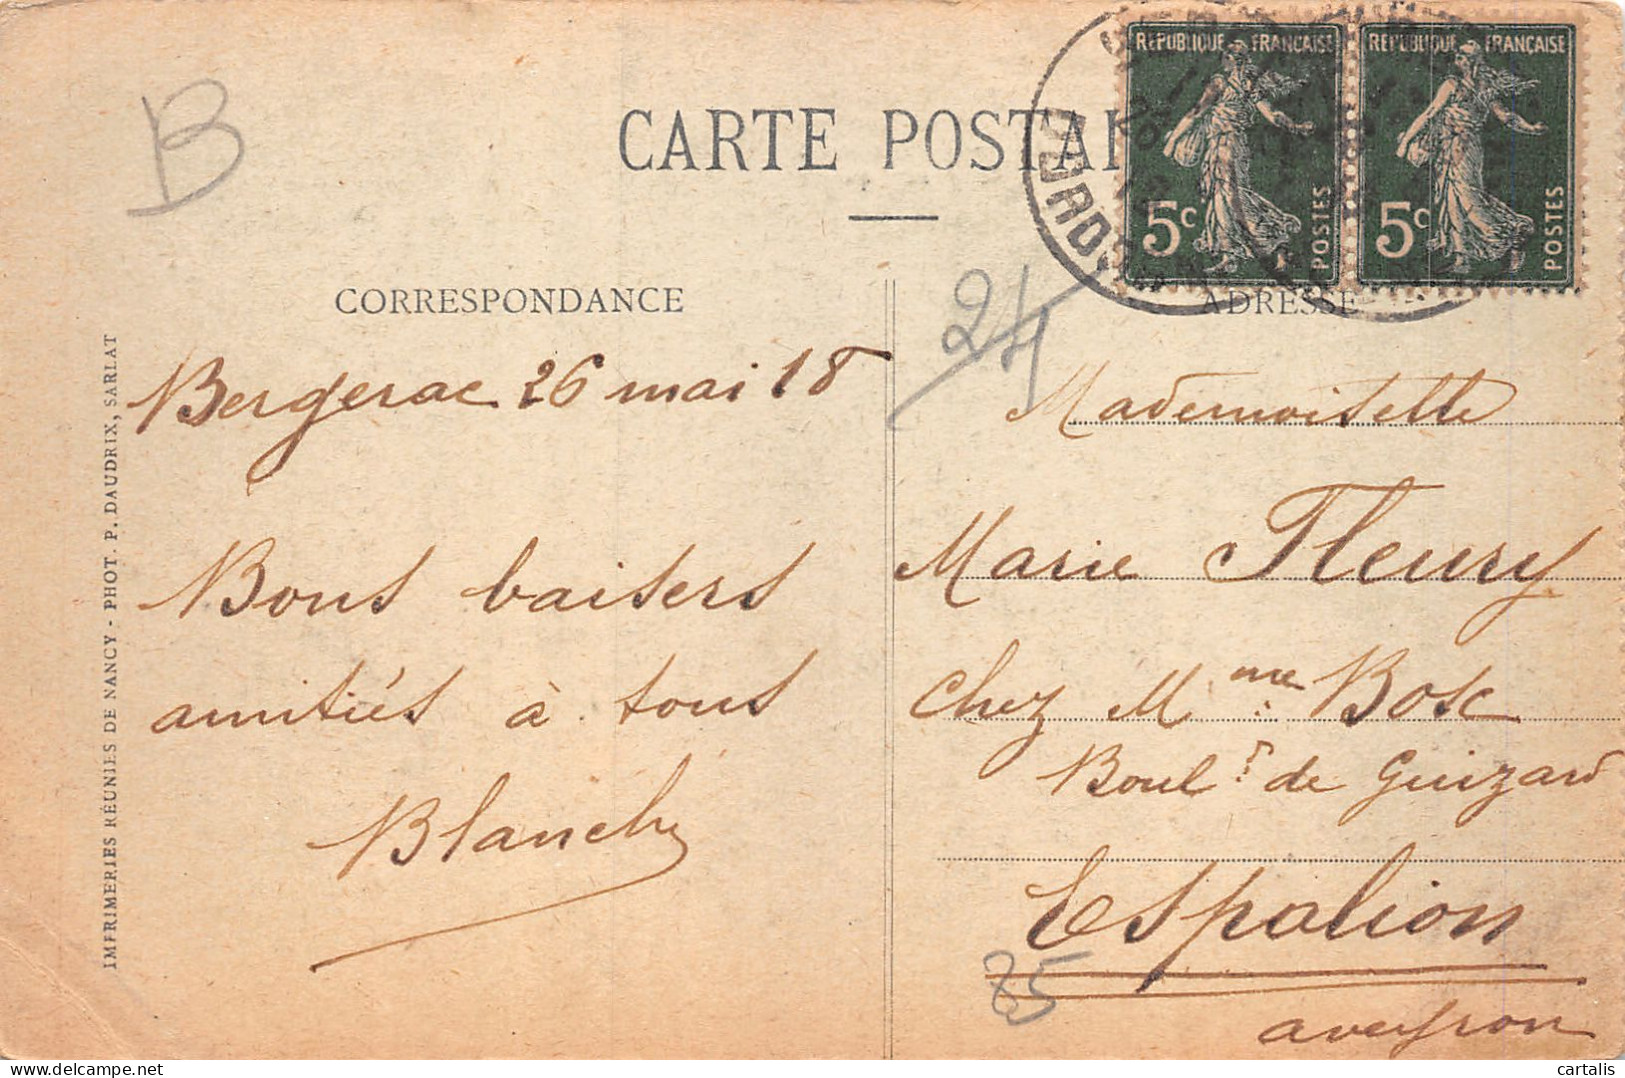 B
CARTE POSTA
RÉPUBLIQUE FRANÇAISE
5c POSTES
RÉPUBLIQUE FRANÇAISE
5c POSTES
CORRESPONDANCE
Bergerac 26 mai 18
Bons baisers
amitiés à tous
Blanche
IMPRIMERIES RÉUNIES DE NANCY - PHOT. P. DAUDRIX, SARLAT
24
ADRESSE
Mademoiselle
Marie Fleury
chez Mme Bosc
Boul.d de Guizard
Espalion
aveyron
cartalis
delcampe.net